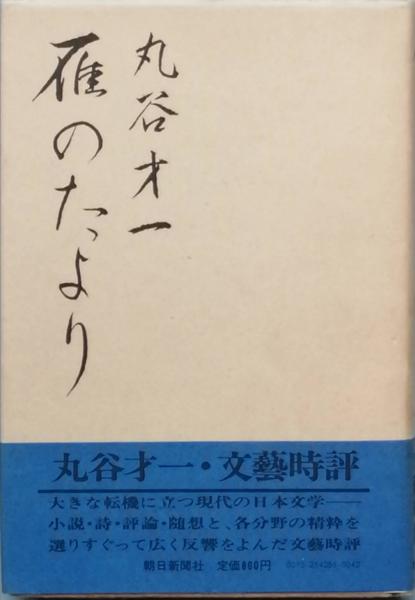 丸谷才一
雁のたより
丸谷才一・文藝時評
大きな転機に立つ現代の日本文学——
小説・詩・評論・随想と、各分野の精粋を
選りすぐって広く反響をよんだ文藝時評
朝日新聞社 定価860円